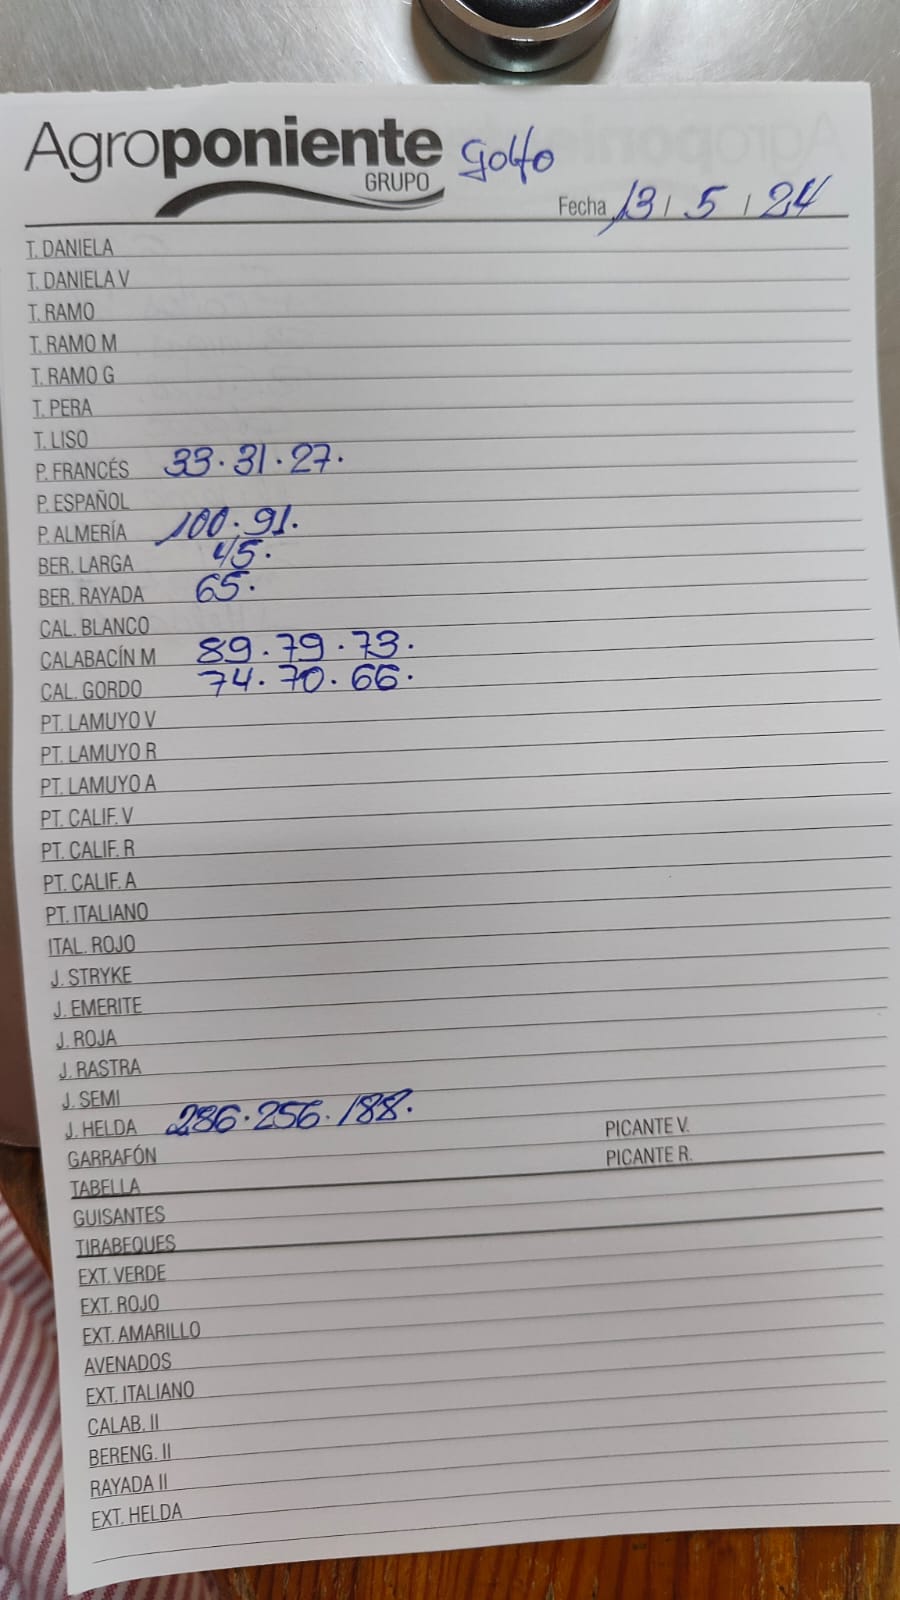 Agroponiente Golfo
GRUPO
Fecha 13 / 5 / 24
T. DANIELA
T. DANIELA V
T. RAMO
T. RAMO M
T. RAMO G
T. PERA
T. LISO
P. FRANCÉS 33.31.27.
P. ESPAÑOL
P. ALMERÍA 100.91.
BER. LARGA 45.
BER. RAYADA 65.
CAL. BLANCO
CALABACÍN M 89.79.73.
CAL. GORDO 74.70.66.
PT. LAMUYO V
PT. LAMUYO R
PT. LAMUYO A
PT. CALIF. V
PT. CALIF. R
PT. CALIF. A
PT. ITALIANO
ITAL. ROJO
J. STRYKE
J. EMERITE
J. ROJA
J. RASTRA
J. SEMI
J. HELDA 286.256.188. PICANTE V.
GARRAFÓN PICANTE R.
TABELLA
GUISANTES
TIRABEQUES
EXT. VERDE
EXT. ROJO
EXT. AMARILLO
AVENADOS
EXT. ITALIANO
CALAB. II
BERENG. II
RAYADA II
EXT. HELDA